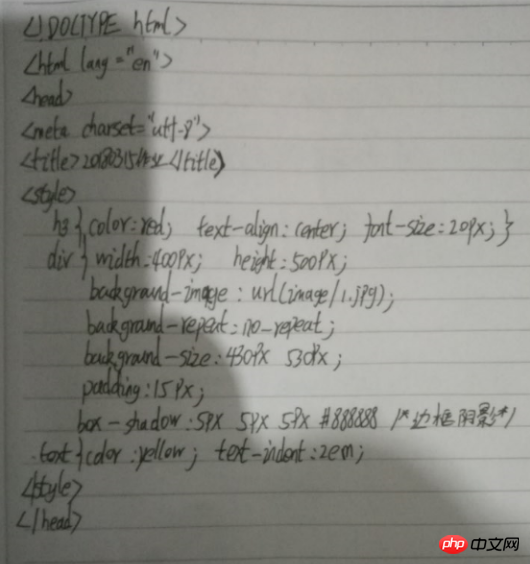 <!DOCTYPE html>
<html lang="en">
<head>
<meta charset="utf-8">
<title></title>
<style>
h3{color:red; text-align:center; font-size:20px;}
div{width:400px; height:500px;
background-image:url(image/1.jpg);
background-repeat:no-repeat;
background-size:430px 530px;
padding:15px;
box-shadow:5px 5px 5px #888888 /*边框阴影*/
.text{color:yellow; text-indent:2em;
</style>
</head>
php 中文网